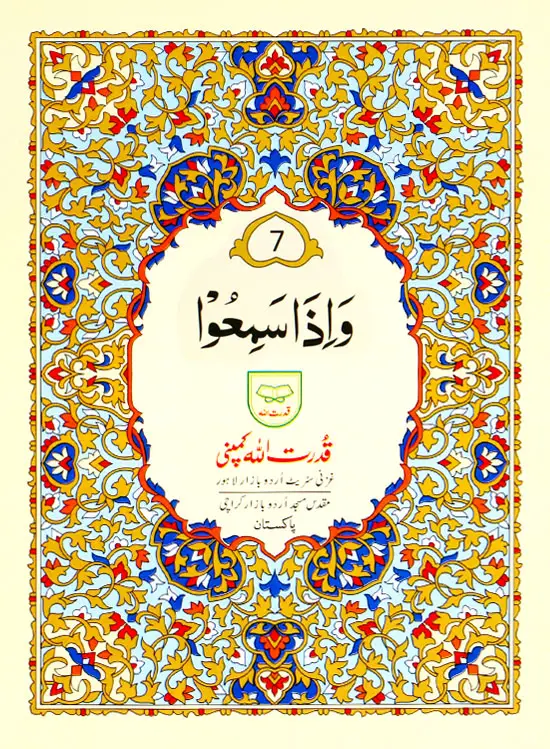 7
وَاِذَا سَمِعُوْا
قدرت اللہ
قُدرت اللہ کمپنی
غزنی سٹریٹ اُردو بازار لاہور
مقدس مسجد اُردو بازار کراچی
پاکستان